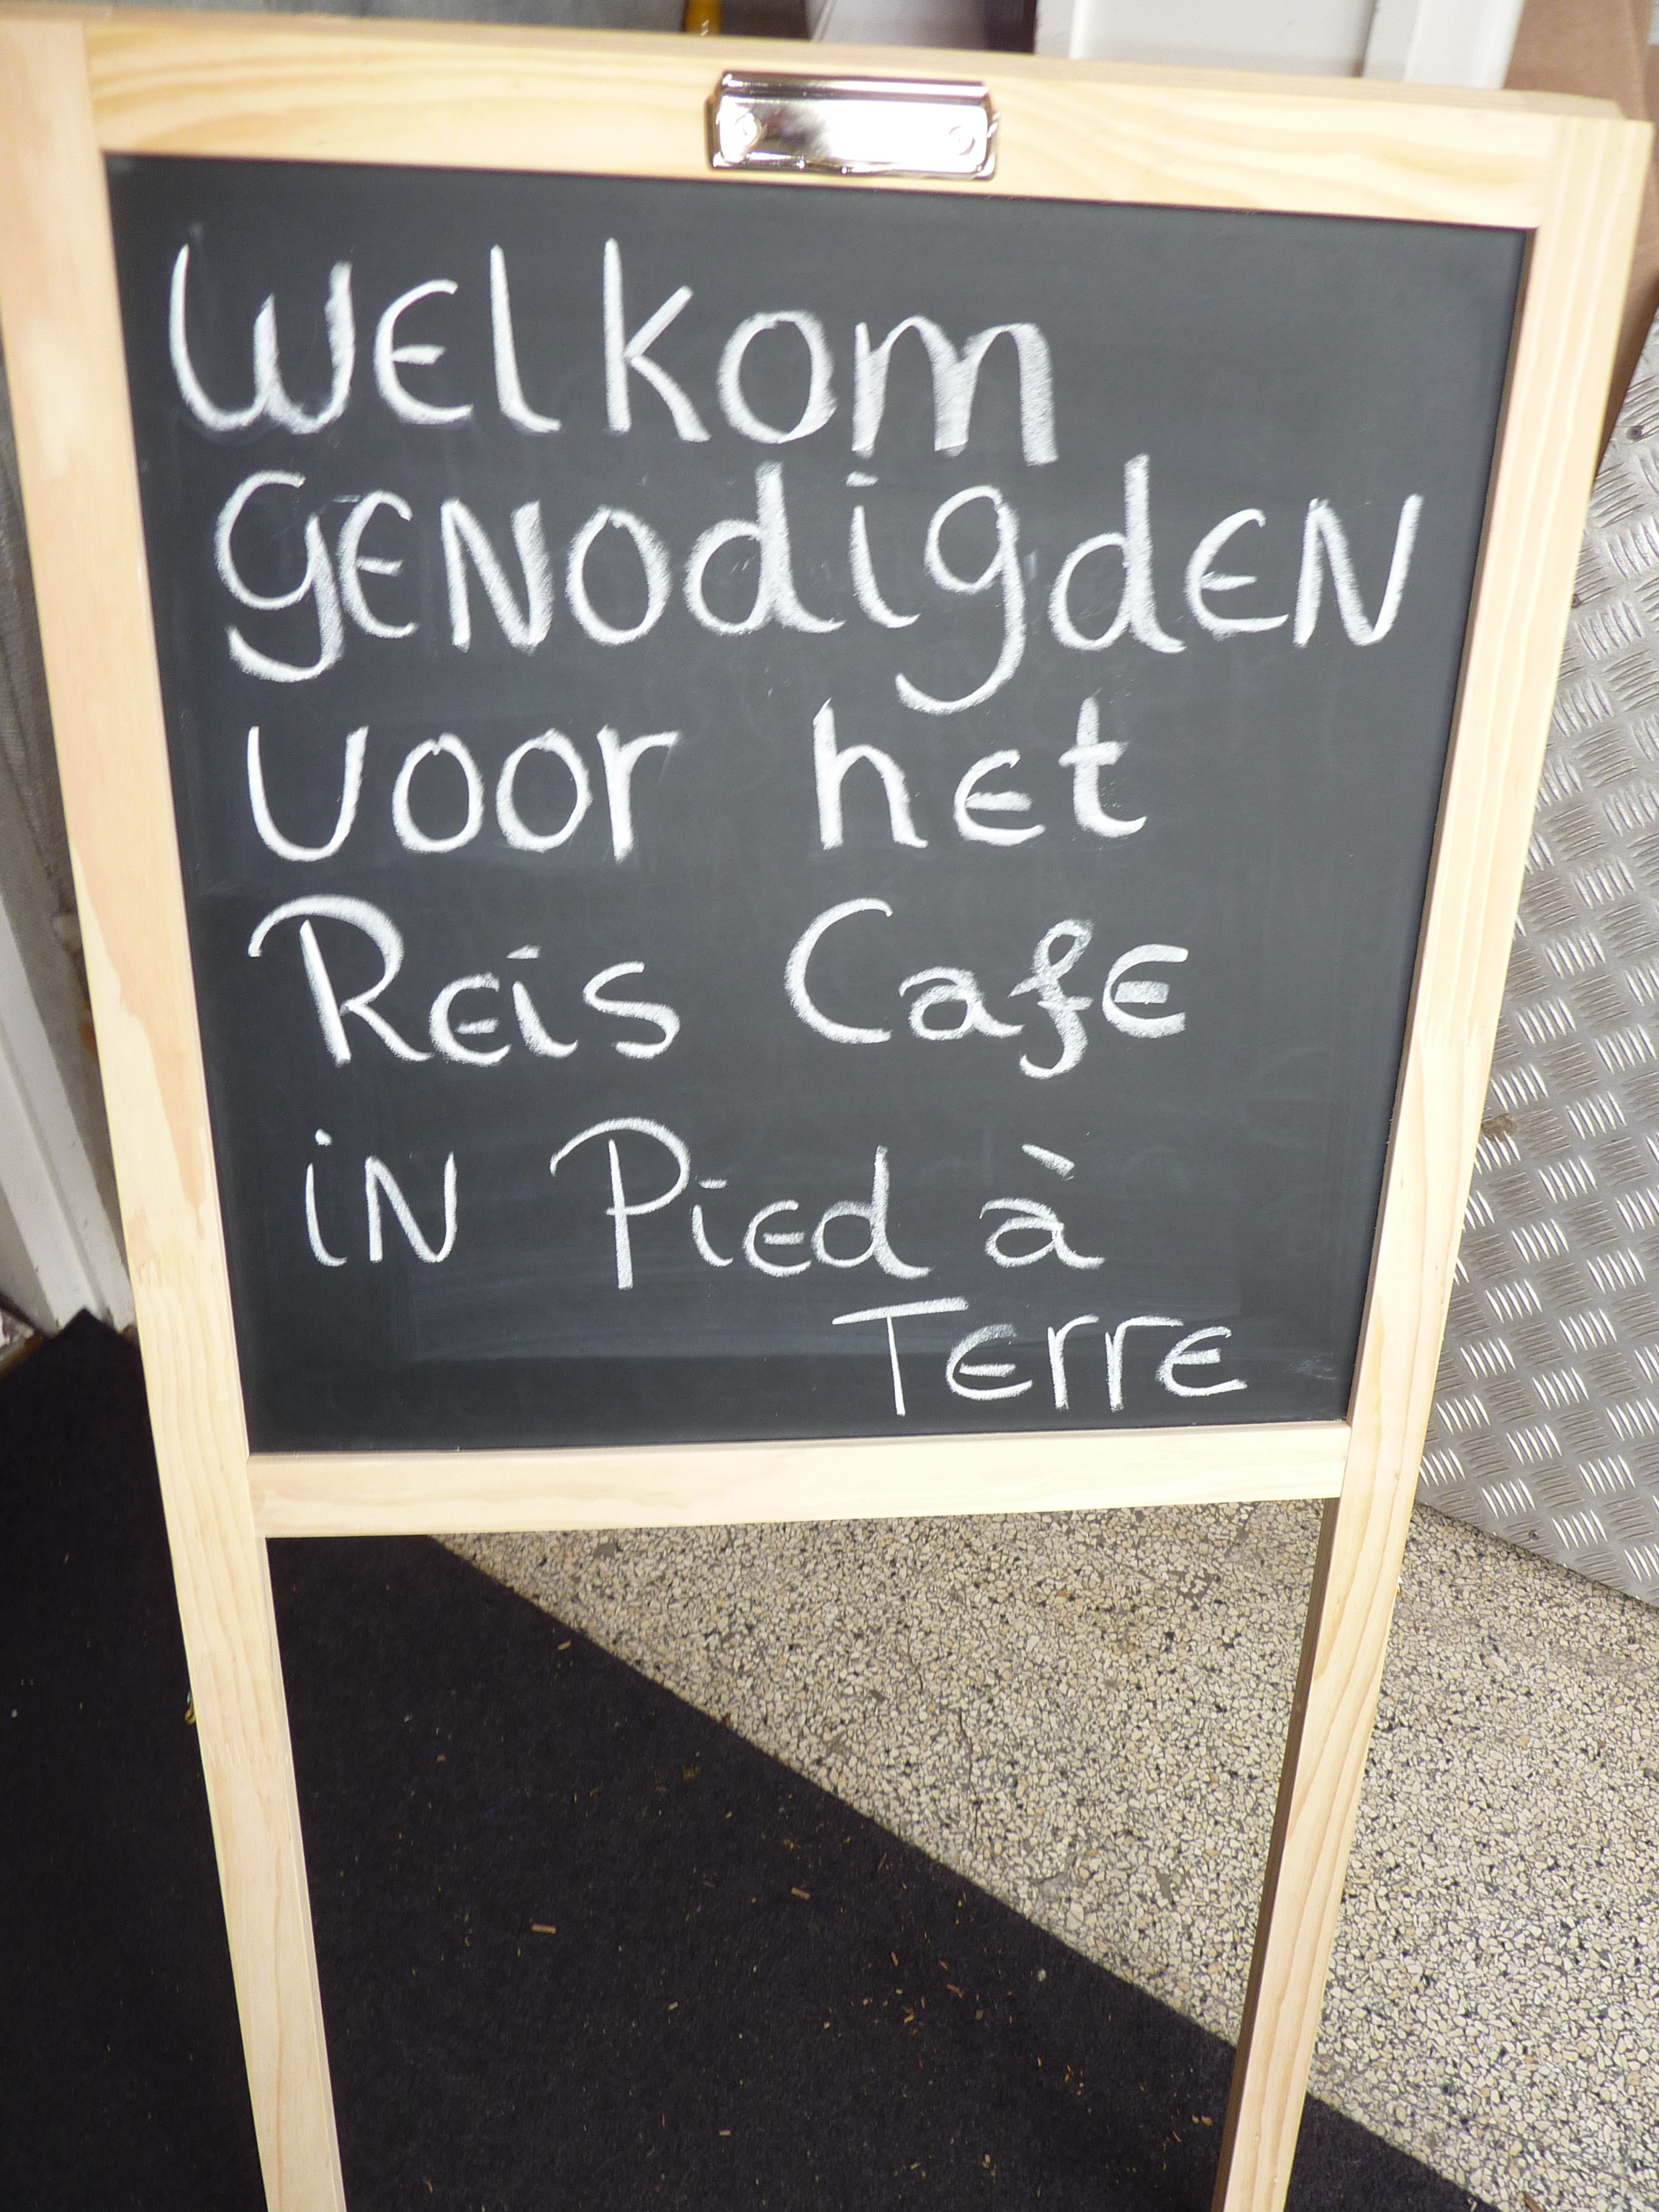 Welkom
genodigden
voor het
Reis Cafe
in Pied à
Terre